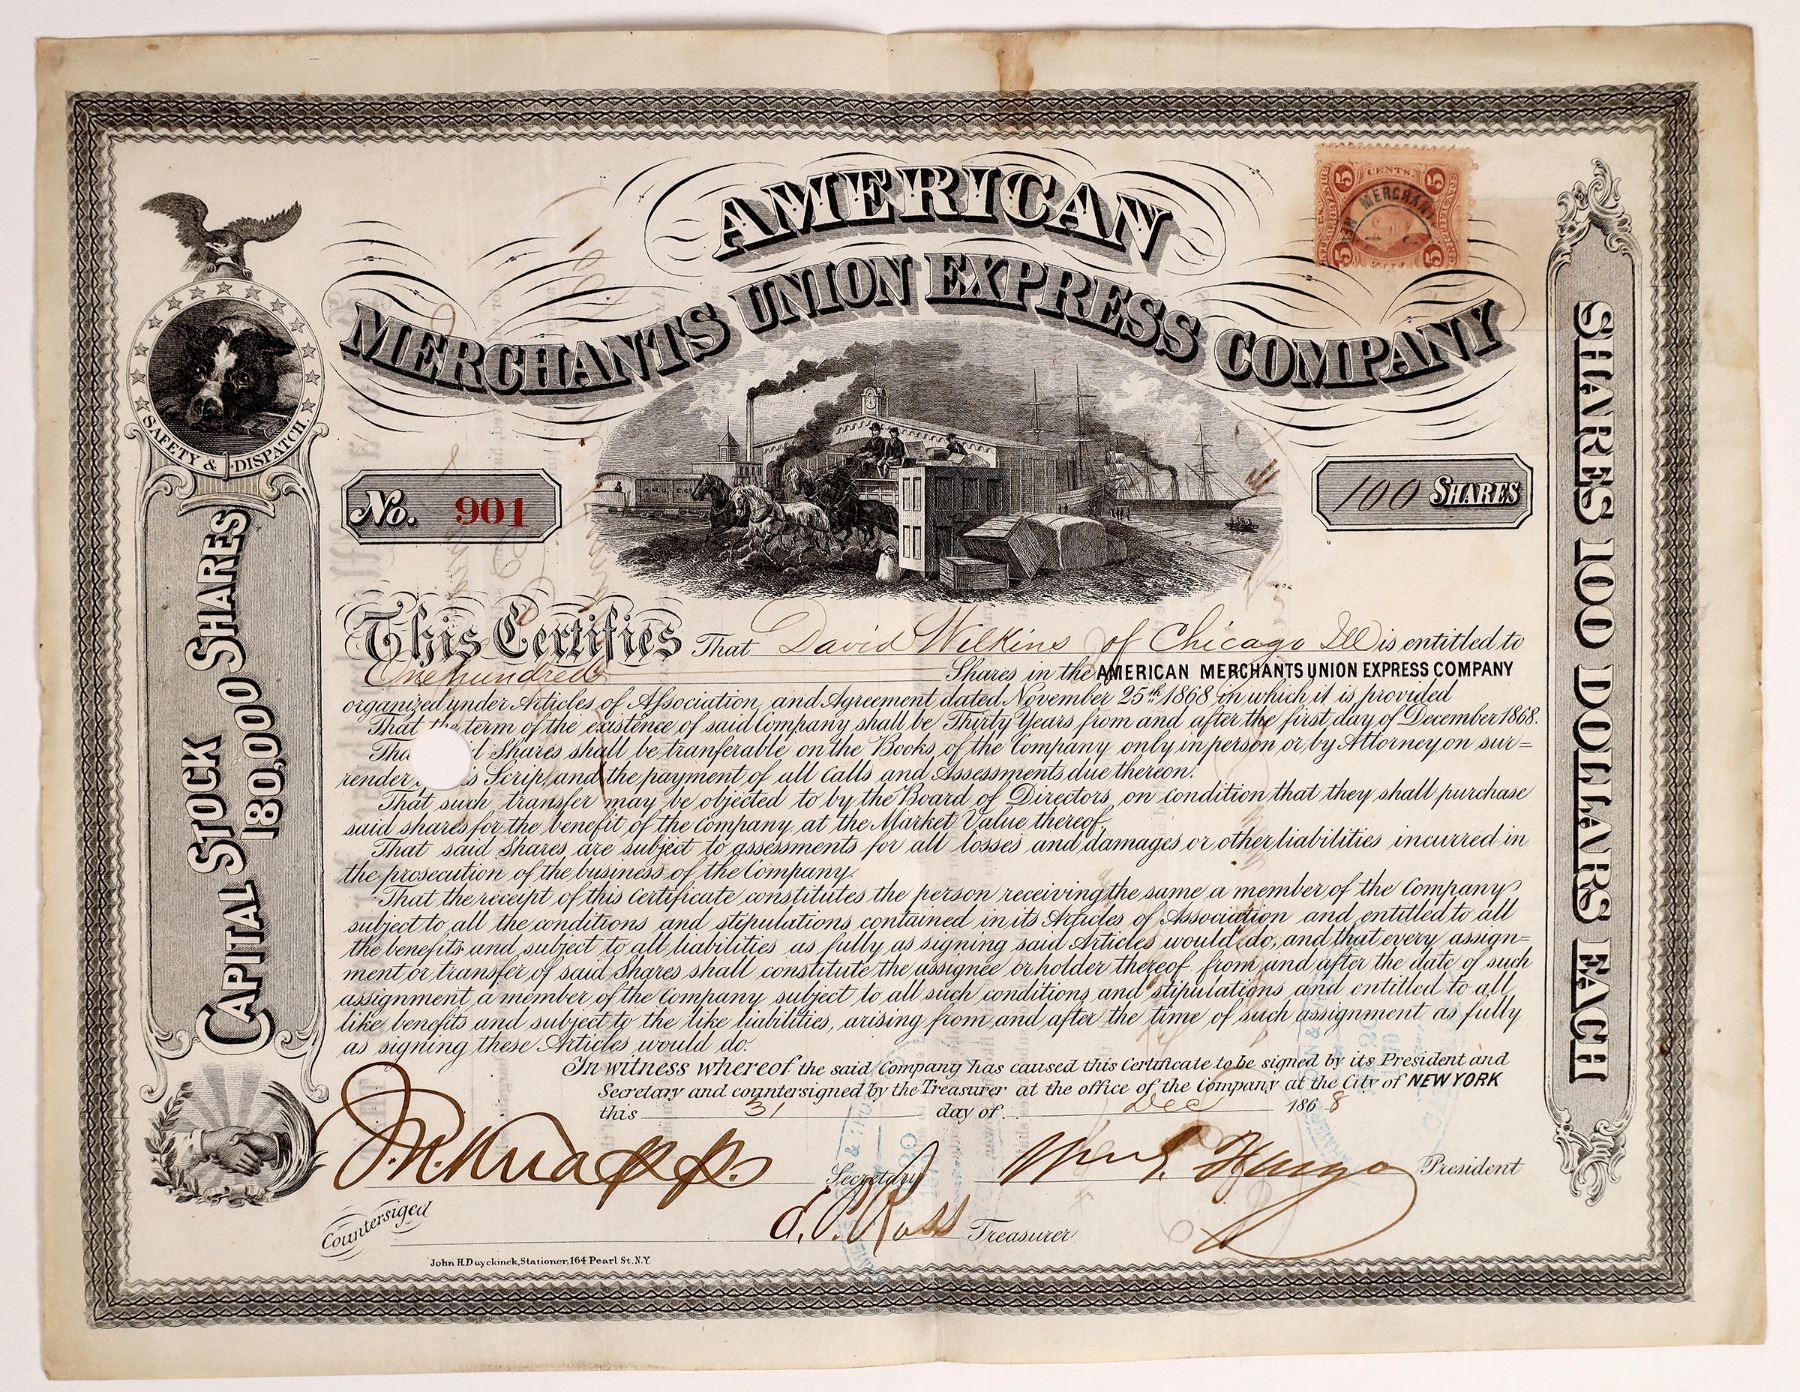 AMERICAN
MERCHANTS UNION EXPRESS COMPANY
5 CENTS. 5
AN MERCHANT
5 5
SAFETY & DISPATCH.
No. 901
100 SHARES
CAPITAL STOCK
180,000 SHARES
SHARES 100 DOLLARS EACH
This Certifies That David Wilkins of Chicago Ill is entitled to
One hundred Shares in the AMERICAN MERCHANTS UNION EXPRESS COMPANY
organized under Articles of Association, and Agreement dated November 25th 1868 in which it is provided
That the term of the existence of said Company shall be Thirty Years from and after the first day of December 1868.
Shares shall be tranferable on the Books of the Company only in person or by Attorney on sur=
render Scrip, and the payment of all Calls and Assessments due thereon.
That such transfer may be objected to by the Board of Directors, on condition that they shall purchase
said shares for the benefit of the Company, at the Market Value thereof.
That said Shares are subject to assessments for all losses and damages or other liabilities incurred in
the prosecution of the business of the Company.
That the receipt of this Certificate constitutes the person receiving the same a member of the Company
subject to all the conditions and stipulations contained in its Articles of Association and entitled to all
the benefits and subject to all liabilities as fully as signing said Articles would do, and that every assign=
ment or transfer of said Shares shall constitute the assignee or holder thereof from and after the date of such
assignment a member of the Company subject to all such conditions and stipulations and entitled to all
like benefits and subject to the like liabilities, arising from and after the time of such assignment as fully
as signing these Articles would do.
In witness whereof the said Company has caused this Certificate to be signed by its President and
Secretary and countersigned by the Treasurer at the office of the Company at the City of NEW YORK
this 31 day of Dec 1868
J. N. Knapp Secretary Wm G. Fargo President
Countersiged J. C. Ross Treasurer
John H. Duyckinck, Stationer, 164 Pearl St. N.Y.